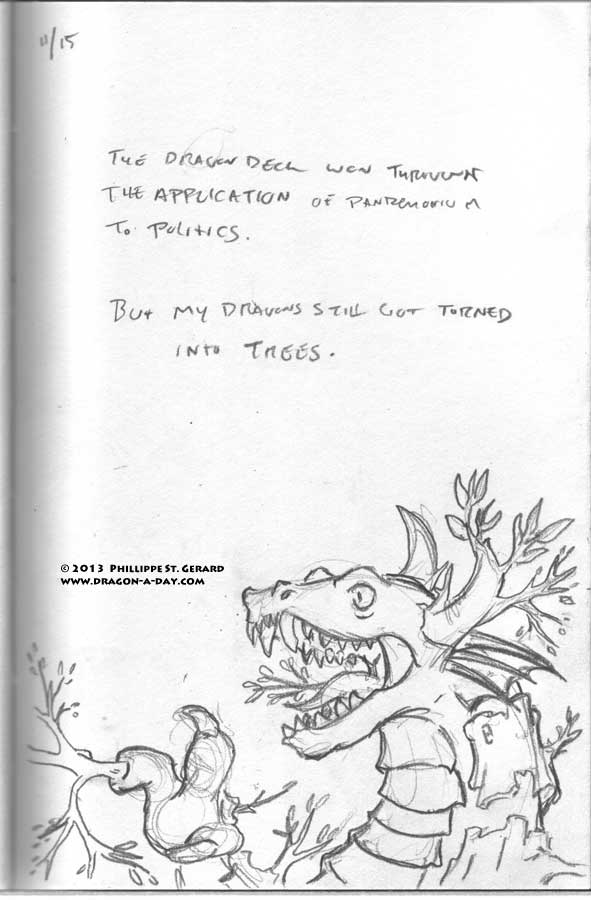 11/15
THE DRAGON DECK WON THROUGH
THE APPLICATION OF PANDEMONIUM
TO POLITICS.
BUT MY DRAGONS STILL GOT TURNED
INTO TREES.
© 2013 PHILLIPPE ST. GERARD
WWW.DRAGON-A-DAY.COM